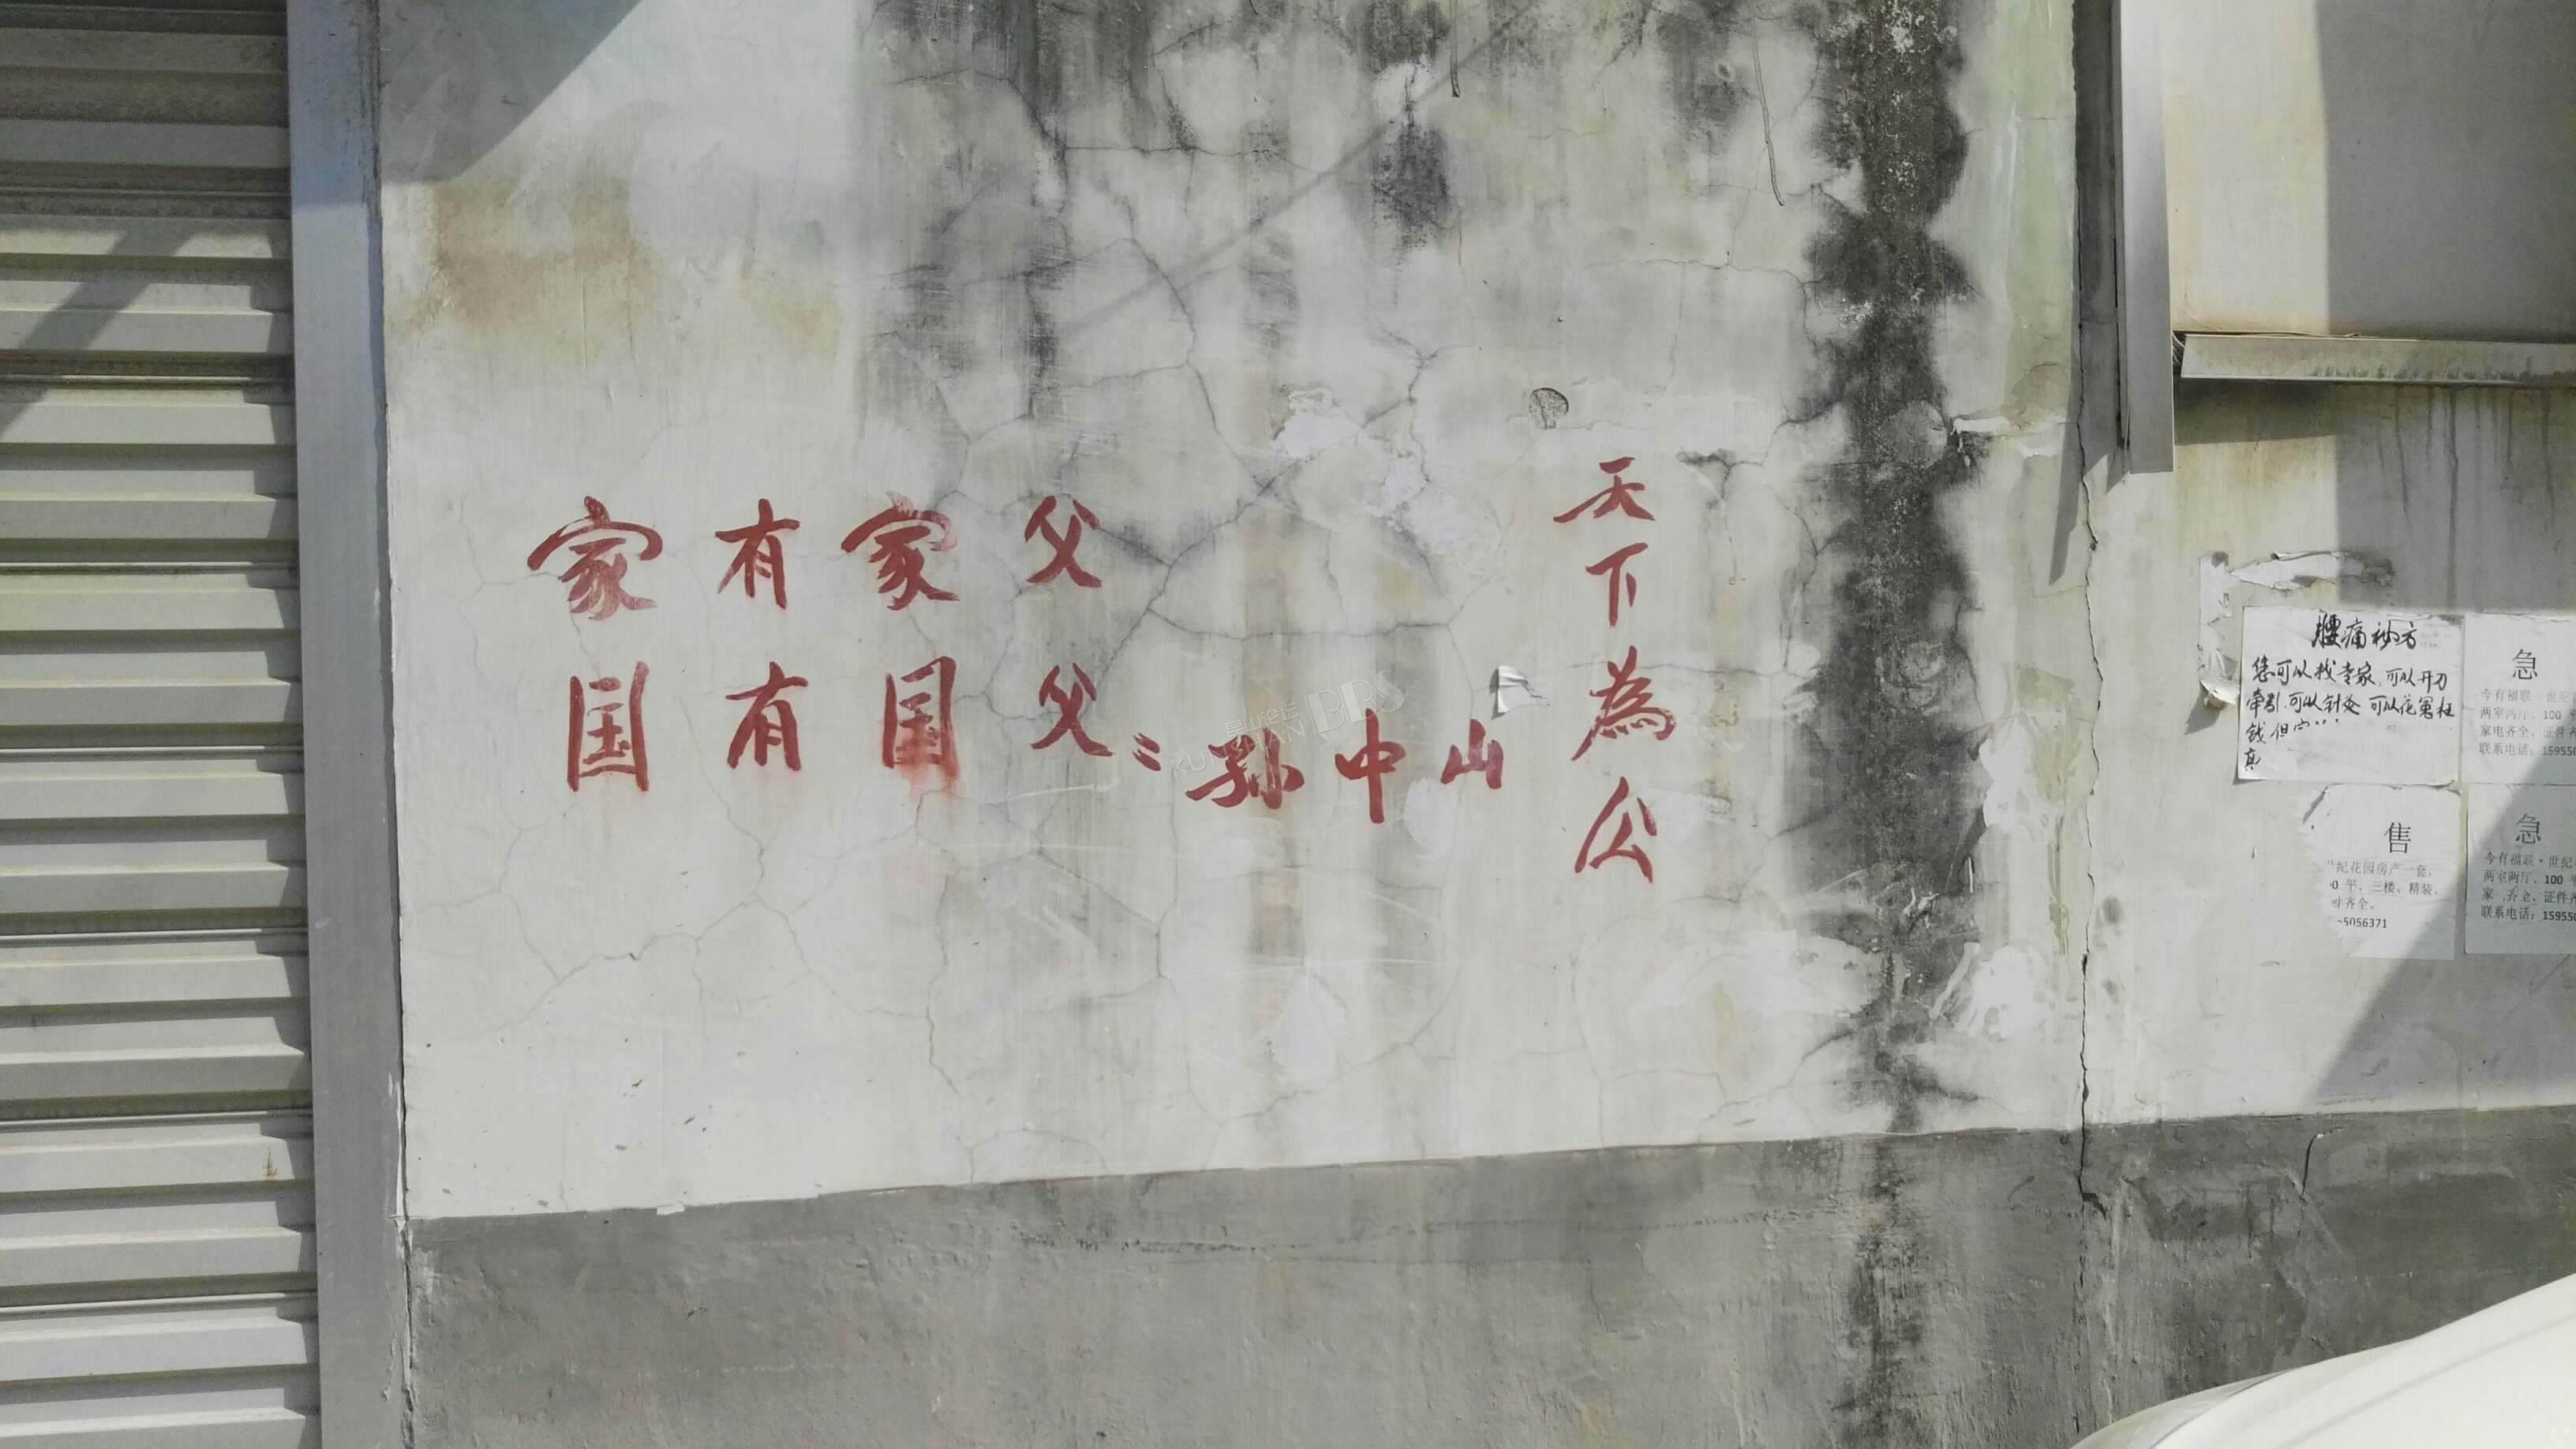 家有家父
国有国父:孙中山
天下為公
腰痛秘方
您可以找专家,可以开刀
牵引.可以针灸 可以花冤枉
钱但
真
急
今有福联·世纪
两室两厅、100
家电齐全、证件齐
联系电话:15955
售
世纪花园房产一套,
0 平、三楼、精装、
件齐全。
5056371
急
今有福联·世纪
两室两厅、100 平
家 齐全、证件齐
联系电话:15955
昆山论坛 BBS
KUNSHAN